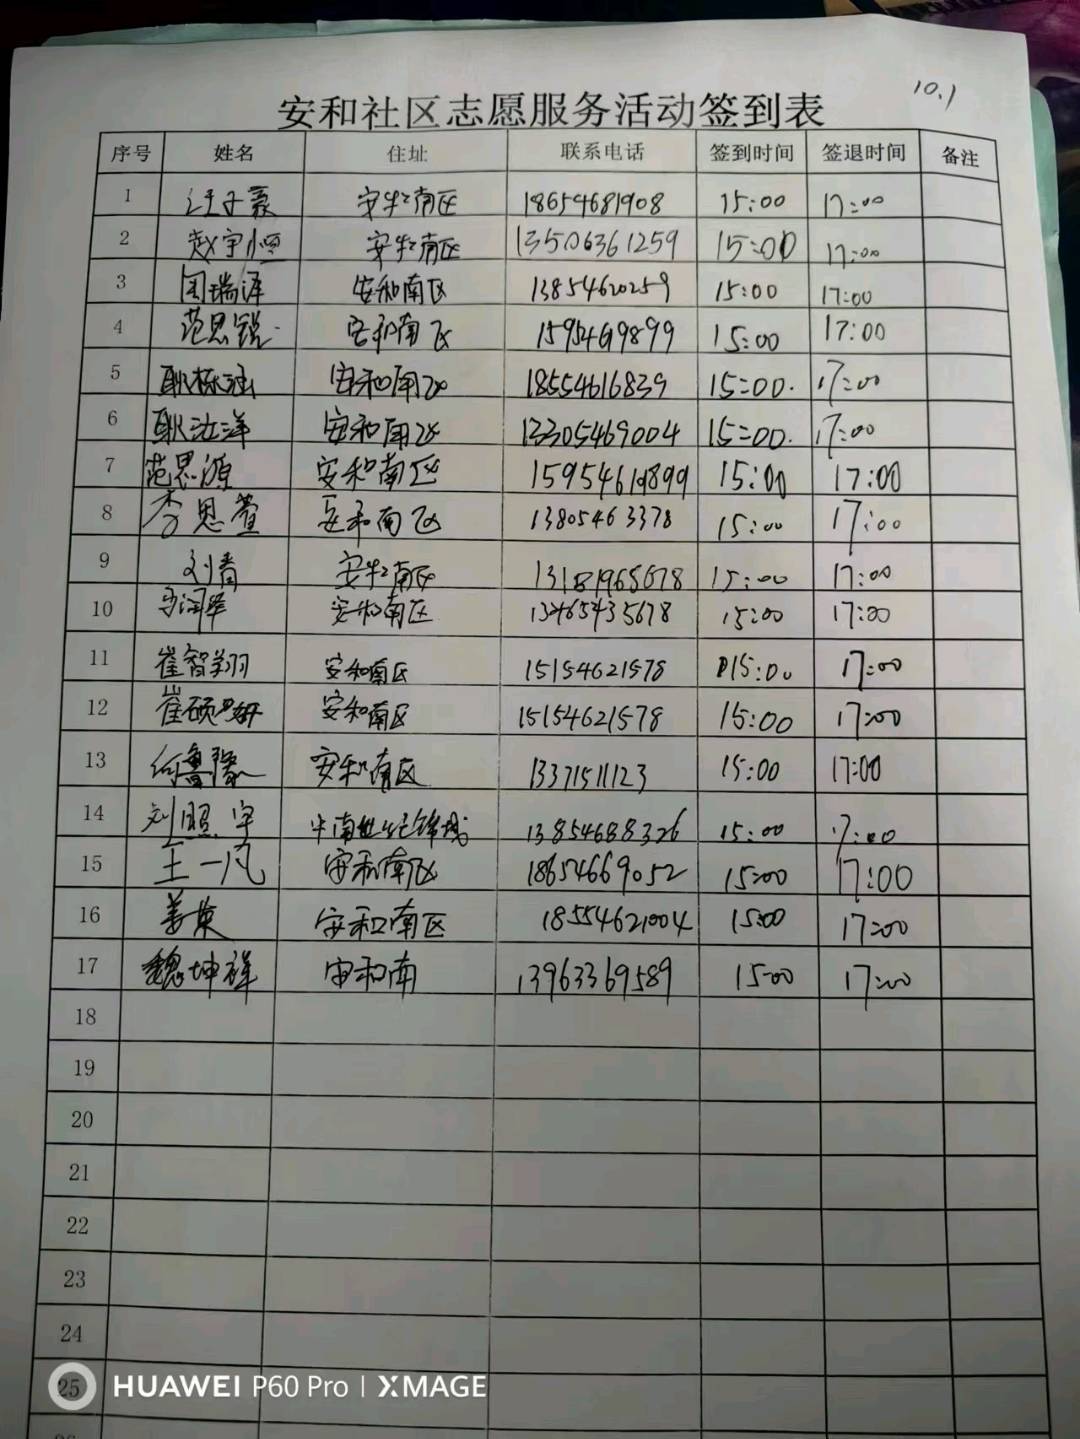 10.1
安和社区志愿服务活动签到表
序号 姓名 住址 联系电话 签到时间 签退时间 备注
1 汪子豪 安和南区 18654681908 15:00 17:00
2 赵宇恒 安和南区 13506361259 15:00 17:00
3 周瑞泽 安和南区 1385460259 15:00 17:00
4 范思锐 安和南区 15954619899 15:00 17:00
5 耿栋涵 安和南区 18554616839 15:00. 17:00
6 耿汝洋 安和南区 13305469004 15:00. 17:00
7 范思源 安和南区 15954619899 15:00 17:00
8 李思萱 安和南区 13805463378 15:00 17:00
9 刘春 安和南区 13181965678 15:00 17:00
10 安和南区 13465435678 15:00 17:00
11 崔智翔 安和南区 15154621578 15:00 17:00
12 崔硕妍 安和南区 15154621578 15:00 17:00
13 何鲁豫 安和南区 13371511123 15:00 17:00
14 刘照宇 中南世纪锦城 13854688326 15:00 17:00
15 王一凡 安和南区 18654669052 15:00 17:00
16 姜英 安和南区 18554621004 15:00 17:00
17 魏坤祥 安和南 13963369589 15:00 17:00
18
19
20
21
22
23
24
25
HUAWEI P60 Pro | XMAGE